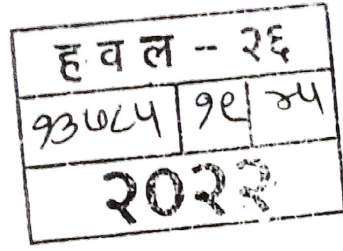 ह व ल - २६
१३७८५ १९ ४५
२०२२